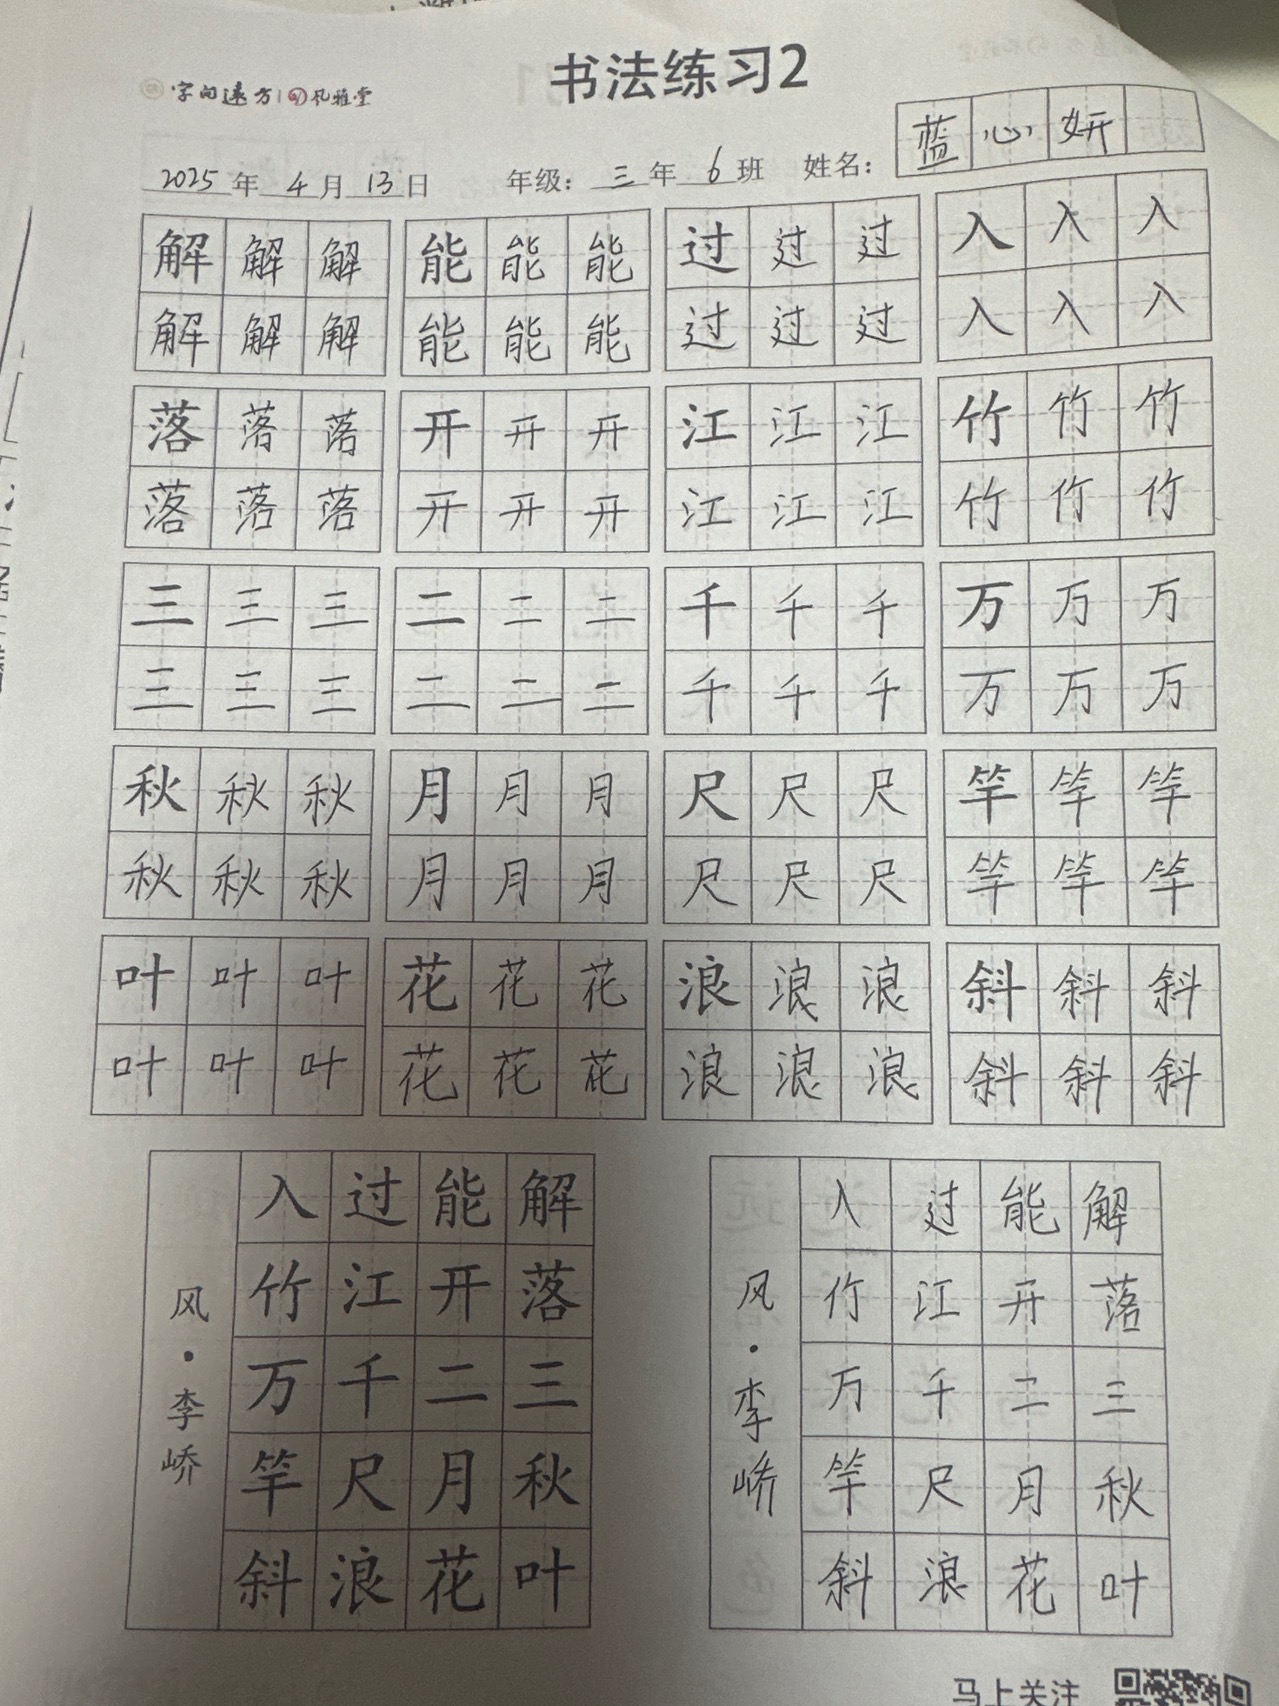 书法练习2
字向远方 | 孔雅堂
2025年4月13日 年级：三年6班 姓名：蓝心妍
解解解 能能能 过过过 入入入
解解解 能能能 过过过 入入入
落落落 开开开 江江江 竹竹竹
落落落 开开开 江江江 竹竹竹
三三三 二二二 千千千 万万万
三三三 二二二 千千千 万万万
秋秋秋 月月月 尺尺尺 竿竿竿
秋秋秋 月月月 尺尺尺 竿竿竿
叶叶叶 花花花 浪浪浪 斜斜斜
叶叶叶 花花花 浪浪浪 斜斜斜
解落三秋叶
能开二月花
过江千尺浪
入竹万竿斜
风·李峤
解落三秋叶
能开二月花
过江千尺浪
入竹万竿斜
风·李峤
马上关注